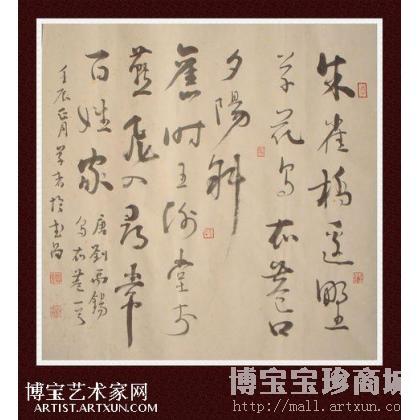 朱雀橋邊野
草花烏衣巷口
夕陽斜
舊時王謝堂前
燕飛入尋常
百姓家
唐劉禹錫
烏衣巷一首
壬辰正月於武昌
博宝艺术家网
ARTIST.ARTXUN.COM
博宝宝珍商城
http://mall.artxun.com/